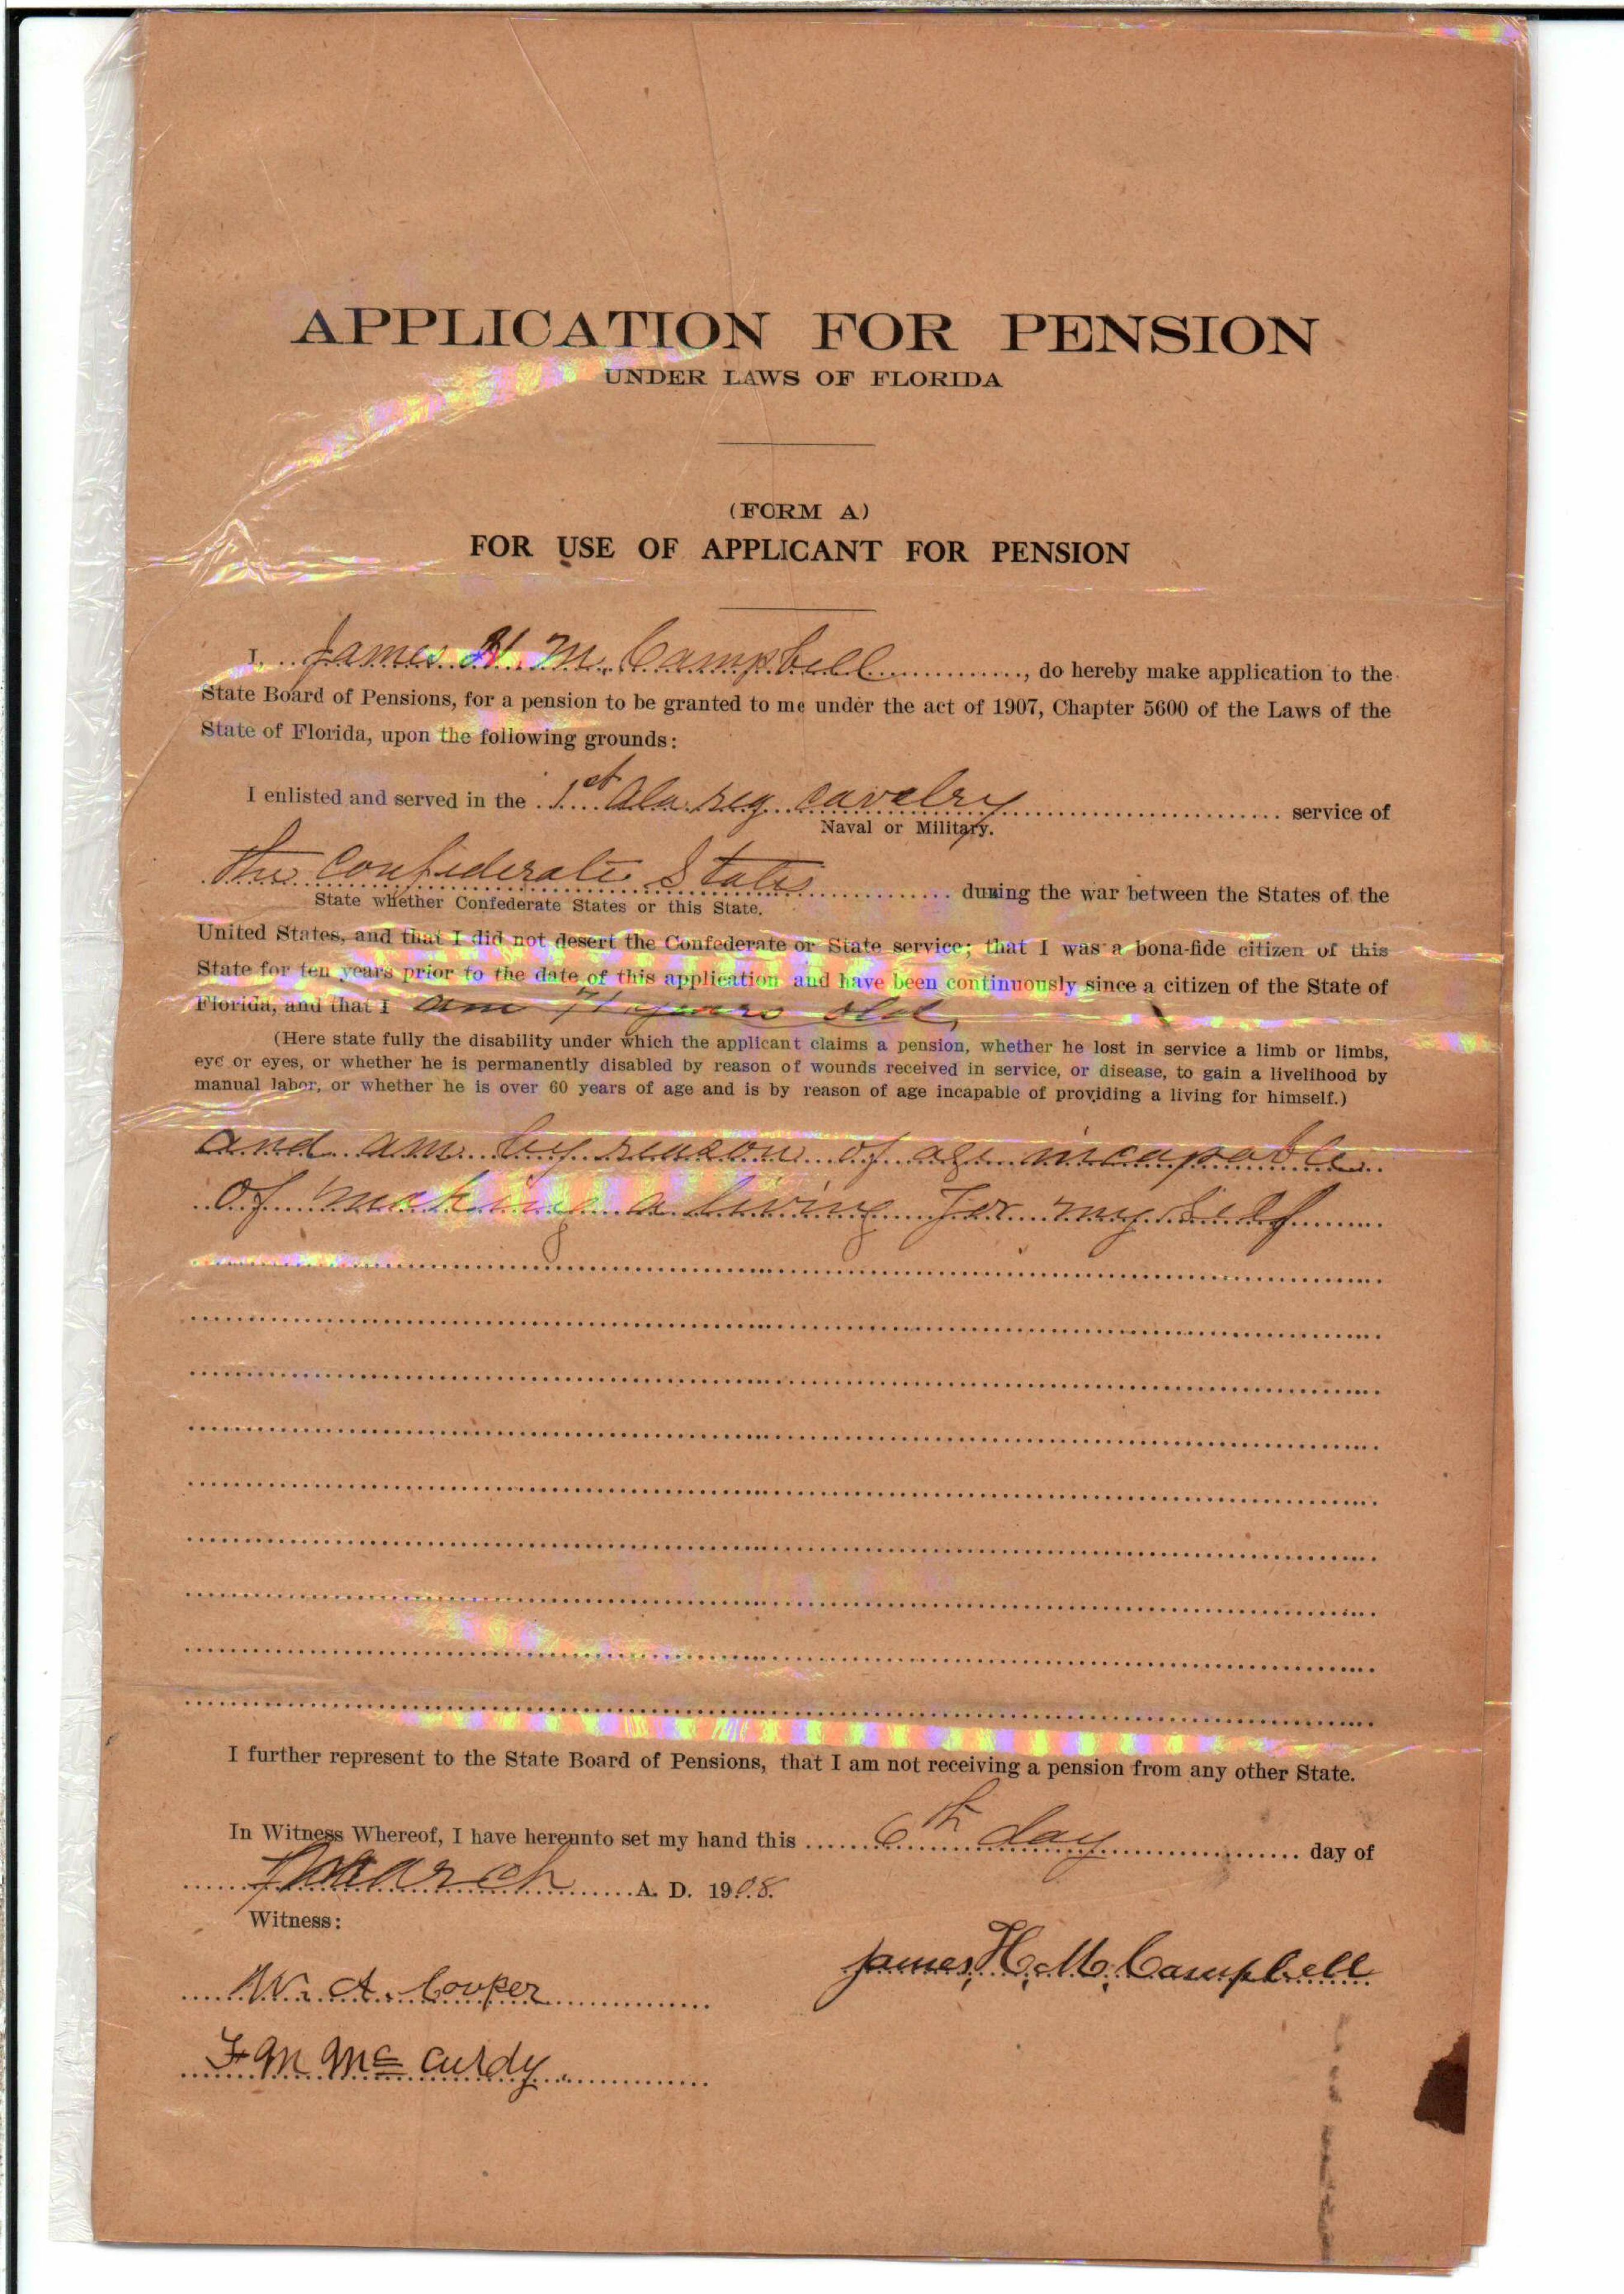 APPLICATION FOR PENSION
UNDER LAWS OF FLORIDA
(FORM A)
FOR USE OF APPLICANT FOR PENSION
I, James H. M. Campbell, do hereby make application to the
State Board of Pensions, for a pension to be granted to me under the act of 1907, Chapter 5600 of the Laws of the
State of Florida, upon the following grounds:
I enlisted and served in the 1st Ala. reg cavelry service of
Naval or Military.
The Confederate States during the war between the States of the
State whether Confederate States or this State.
United States, and that I did not desert the Confederate or State service; that I was a bona-fide citizen of this
State for ten years prior to the date of this application and have been continuously since a citizen of the State of
Florida, and that I am 71 years old,
(Here state fully the disability under which the applicant claims a pension, whether he lost in service a limb or limbs,
eye or eyes, or whether he is permanently disabled by reason of wounds received in service, or disease, to gain a livelihood by
manual labor, or whether he is over 60 years of age and is by reason of age incapable of providing a living for himself.)
and am by reason of age incapable
of making a living for my self
I further represent to the State Board of Pensions, that I am not receiving a pension from any other State.
In Witness Whereof, I have hereunto set my hand this 6th day day of
March A. D. 1908.
Witness:
James, H. M. Campbell
W. A. Cooper
F M Mc Curdy